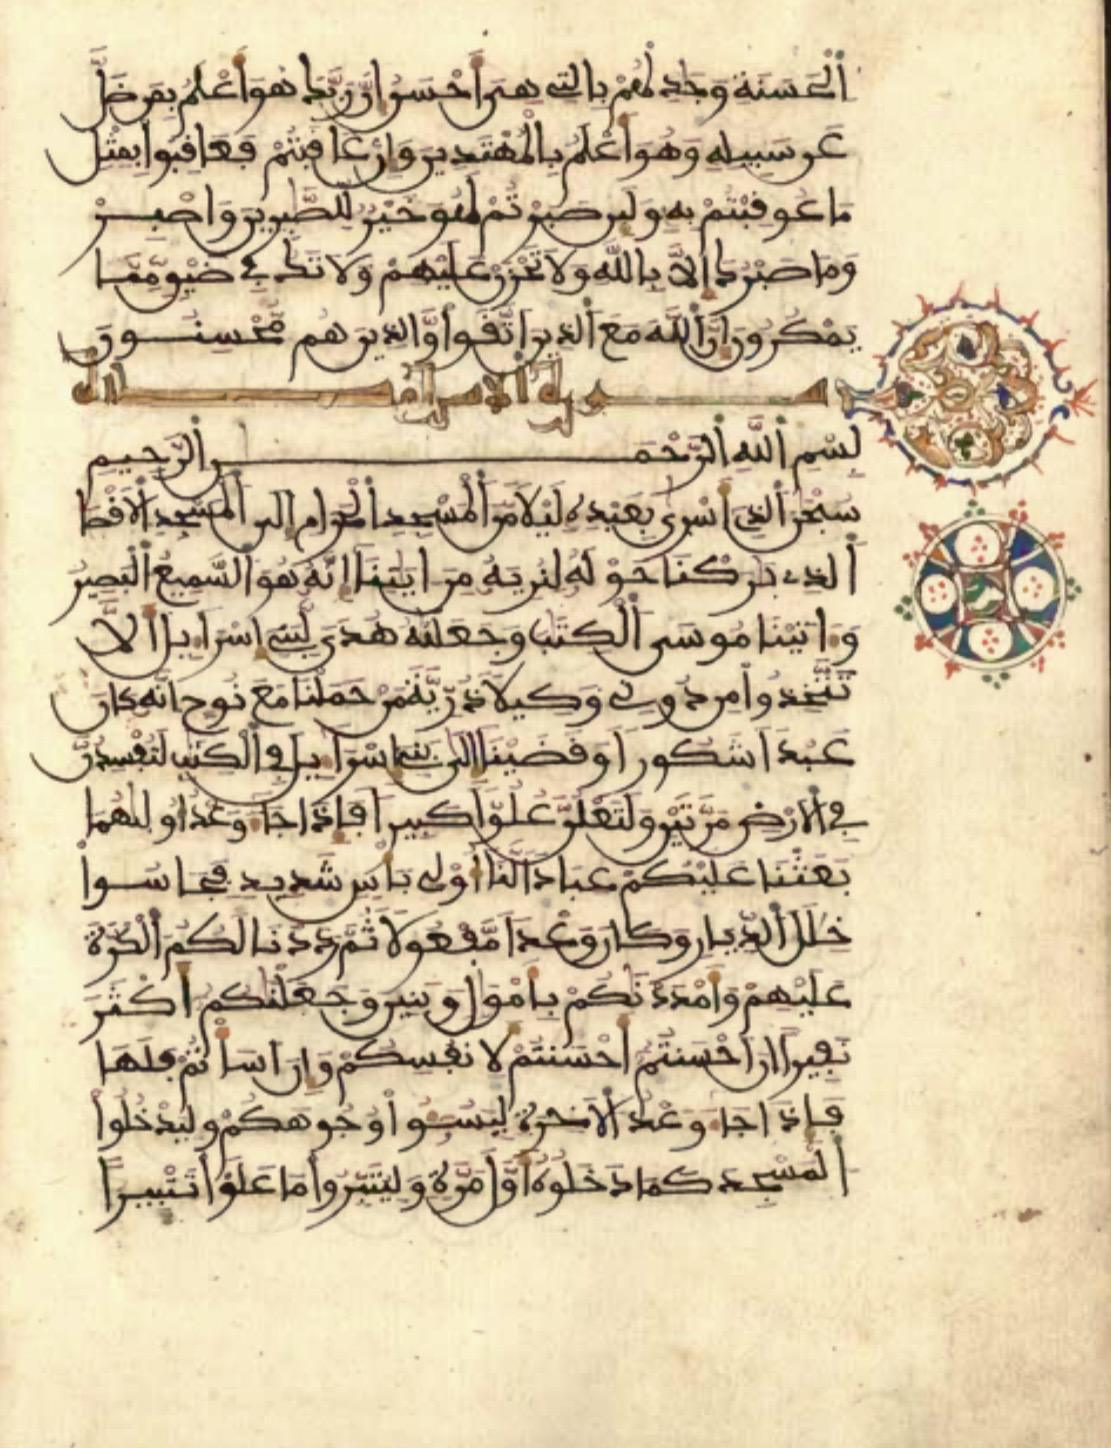 الحسنة وجدلهم بالتي هي أحسن إن ربك هو أعلم بمن ضل
عن سبيله وهو أعلم بالمهتدين وإن عاقبتم فعاقبوا بمثل
ما عوقبتم به ولين صبرتم لهو خير للصبرين واصبر
وما صبرك إلا بالله ولا تحزن عليهم ولا تك في ضيق مما
يمكرون إن الله مع الذين اتقوا والذين هم محسنون
بسم الله الرحمن الرحيم
سبحن الذي أسرى بعبده ليلا من المسجد الحرام إلى المسجد الأقصا
الذي بركنا حوله لنريه من ايتنا إنه هو السميع البصير
واتينا موسى الكتب وجعلنه هدى لبني إسرايل ألا
تتخذوا من دوني وكيلا ذرية من حملنا مع نوح إنه كان
عبدا شكورا وقضينا إلى بني إسرايل في الكتب لتفسدن
في الأرض مرتين ولتعلن علوا كبيرا فإذا جاء وعد أوليهما
بعثنا عليكم عبادا لنا أولي بأس شديد فجاسوا
خلل الديار وكان وعدا مفعولا ثم رددنا لكم الكرة
عليهم وأمددنكم بأمول وبنين وجعلنكم أكثر
نفيرا إن أحسنتم أحسنتم لأنفسكم وإن أسأتم فلها
فإذا جاء وعد الأخرة ليسئوا وجوهكم وليدخلوا
المسجد كما دخلوه أول مرة وليتبروا ما علوا تتبيرا